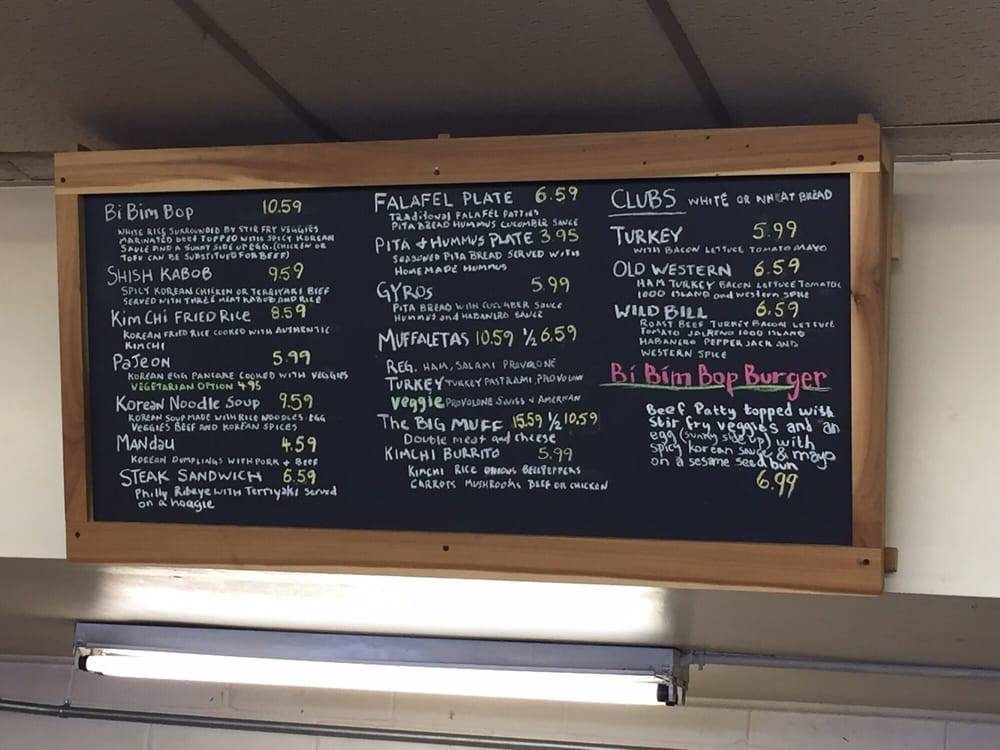 Bi Bim Bop 10.59
WHITE RICE SURROUNDED BY STIR FRY VEGGIES
MARINATED BEEF TOPPED WITH SPICY KOREAN
SAUCE AND A SUNNY SIDE UP EGG. (CHICKEN OR
TOFU CAN BE SUBSTITUTED FOR BEEF)
SHISH KABOB 9.59
SPICY KOREAN CHICKEN OR TERRIYAKI BEEF
SERVED WITH THREE MEAT KABOB AND RICE
KIM CHI FRIED RICE 8.59
KOREAN FRIED RICE COOKED WITH AUTHENTIC
KIM CHI
PaJeon 5.99
KOREAN EGG PANCAKE COOKED WITH VEGGIES
VEGETARIAN OPTION 4.95
Korean Noodle Soup 9.59
KOREAN SOUP MADE WITH RICE NOODLES EGG
VEGGIES BEEF AND KOREAN SPICES
Mandau 4.59
KOREAN DUMPLINGS WITH PORK + BEEF
STEAK SANDWICH 6.59
Philly Ribeye with Terriyaki served
on a hoagie
FALAFEL PLATE 6.59
TRADITIONAL FALAFEL PATTIES
PITA BREAD HUMMUS CUCUMBER SAUCE
PITA + HUMMUS PLATE 3.95
SEASONED PITA BREAD SERVED WITH
HOMEMADE HUMMUS
GYROS 5.99
PITA BREAD WITH CUCUMBER SAUCE
HUMMUS AND HABANERO SAUCE
MUFFALETAS 10.59 ½ 6.59
REG. HAM, SALAMI PROVOLONE
TURKEY TURKEY PASTRAMI, PROVOLONE
Veggie PROVOLONE SWISS + AMERICAN
The BIG MUFF 15.59 ½ 10.59
Double meat and cheese
KIMCHI BURRITO 5.99
KIMCHI RICE ONIONS BELL PEPPERS
CARROTS MUSHROOMS BEEF OR CHICKEN
CLUBS WHITE OR WHEAT BREAD
TURKEY 5.99
WITH BACON LETTUCE TOMATO MAYO
OLD WESTERN 6.59
HAM TURKEY BACON LETTUCE TOMATOE
1000 ISLAND and western spice
WILD BILL 6.59
ROAST BEEF TURKEY BACON LETTUCE
TOMATO JALPENO 1000 ISLAND
HABANERO PEPPER JACK AND
WESTERN SPICE
Bi Bim Bop Burger
Beef Patty topped with
Stir fry veggies and an
egg (sunny side up) with
spicy korean sauce & mayo
on a sesame seed bun
6.99